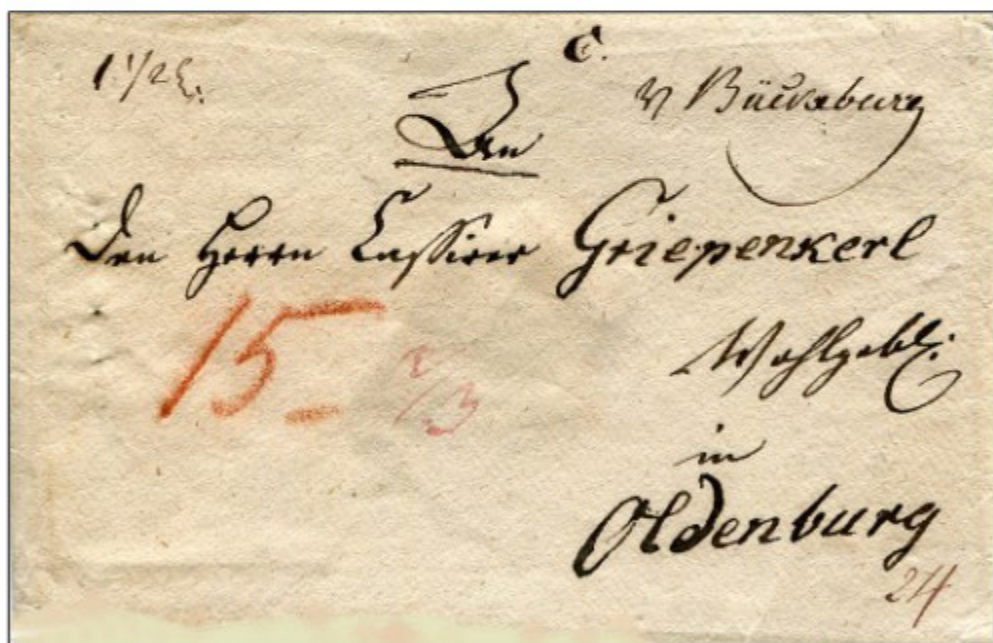 C.
1 1/2 L.
v Bückeburg
An
Den Herrn Cassirer Griepenkerl
15
Wohlgebl:
in
Oldenburg
24